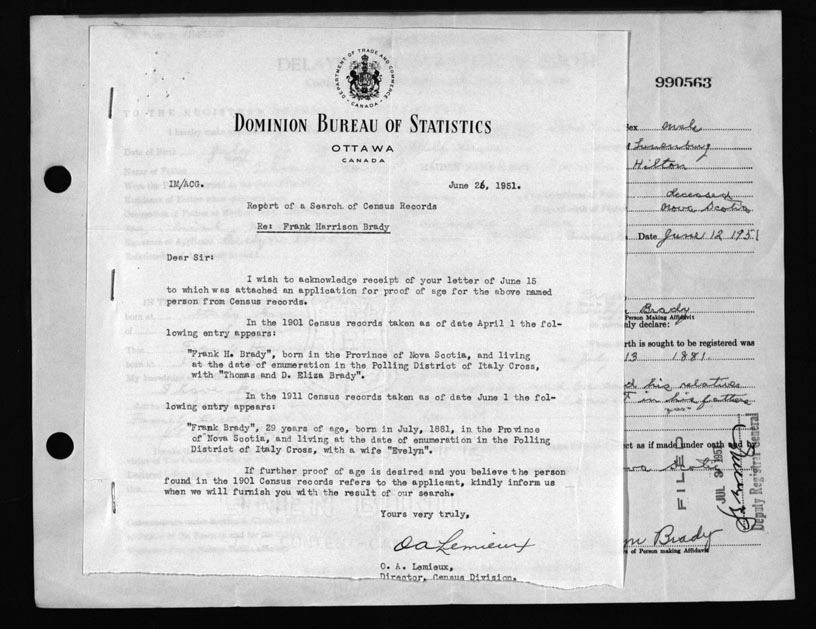 DEPARTMENT OF TRADE AND COMMERCE
CANADA
DOMINION BUREAU OF STATISTICS
OTTAWA
CANADA
IM/ACG.
June 26, 1951.
Report of a Search of Census Records
Re: Frank Harrison Brady
Dear Sir:
I wish to acknowledge receipt of your letter of June 15
to which was attached an application for proof of age for the above named
person from Census records.
In the 1901 Census records taken as of date April 1 the fol-
lowing entry appears:
"Frank H. Brady", born in the Province of Nova Scotia, and living
at the date of enumeration in the Polling District of Italy Cross,
with "Thomas and D. Eliza Brady".
In the 1911 Census records taken as of date June 1 the fol-
lowing entry appears:
"Frank Brady", 29 years of age, born in July, 1881, in the Province
of Nova Scotia, and living at the date of enumeration in the Polling
District of Italy Cross, with a wife "Evelyn".
If further proof of age is desired and you believe the person
found in the 1901 Census records refers to the applicant, kindly inform us
when we will furnish you with the result of our search.
Yours very truly,
O A Lemieux
O. A. Lemieux,
Director, Census Division.
990563
Sex male
Lunenburg
Hilton
deceased
Nova Scotia
Date June 12 1951
Brady
Person Making Affidavit
declare:
birth is sought to be registered was
13 1881
his relatives
in his father's
as if made under oath and
FILED
JUL 3 1951
Deputy Registrar General
Brady
of Person making Affidavit